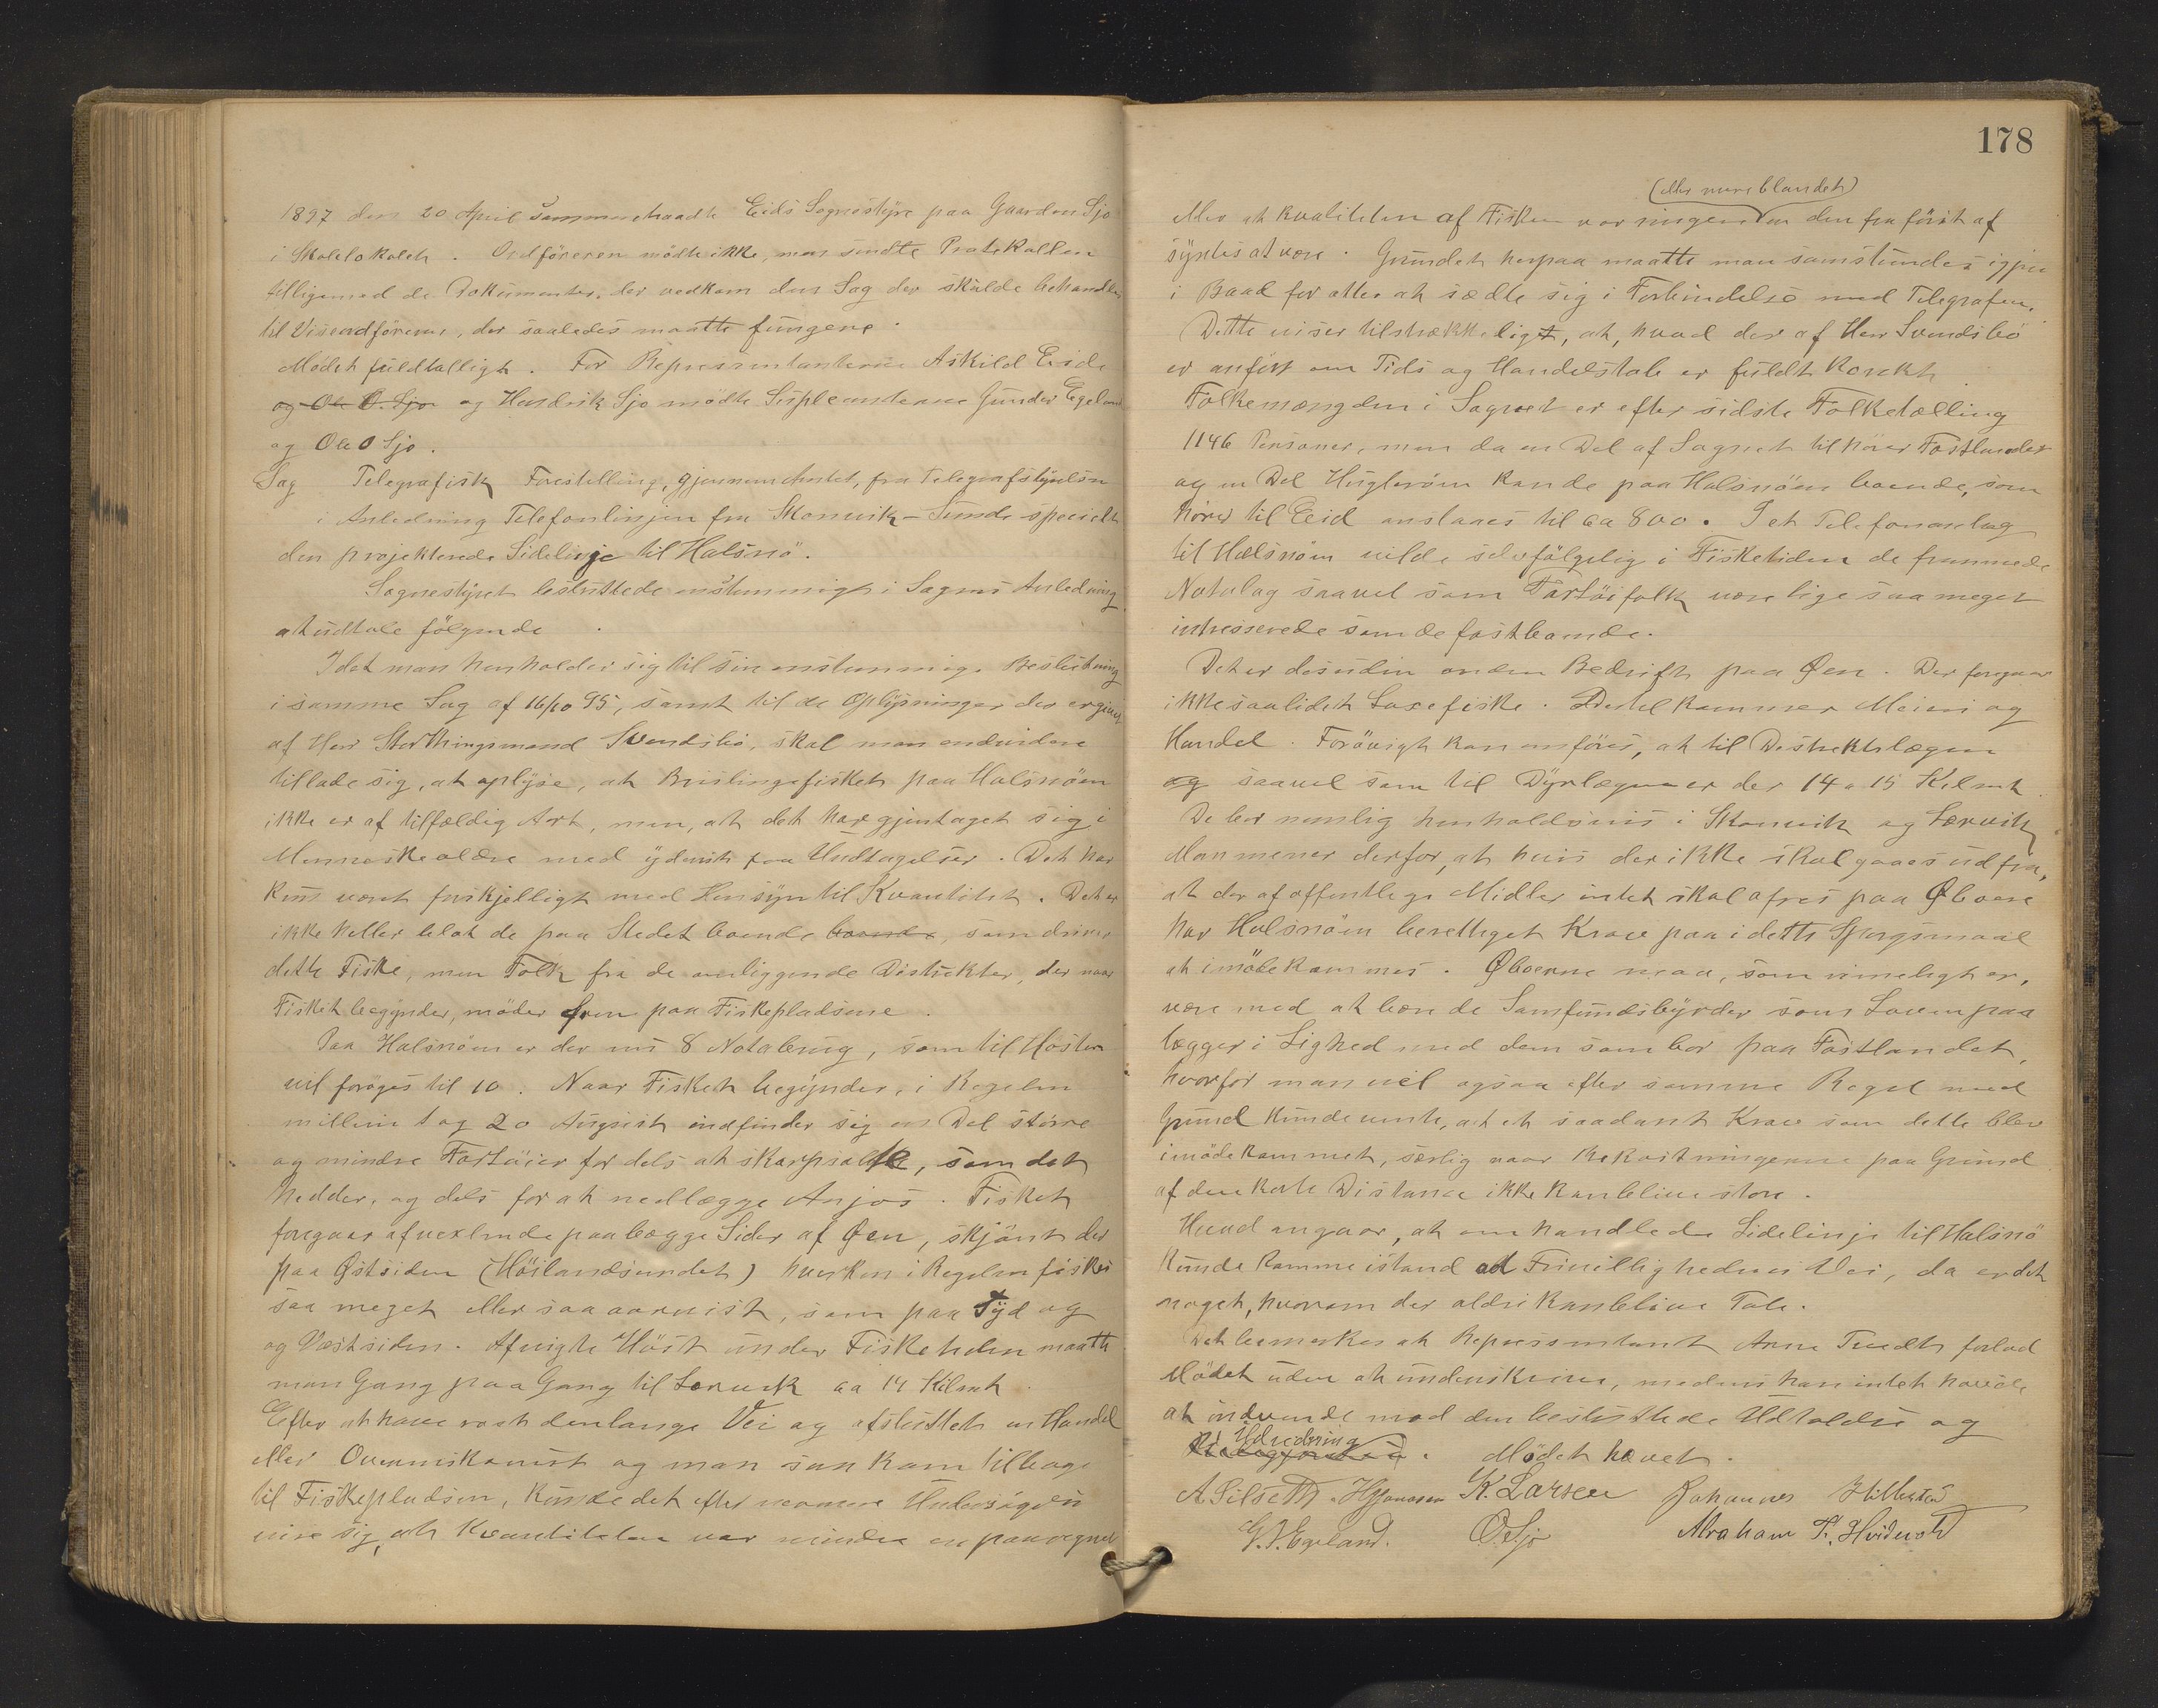 1897 den 20 April sammentraadte Eids Sognestyre paa Gaarden Sjo
i Skolelokalet. Ordføreren mødte ikke, men sendte Protokollen
tilligemed de Dokumenter, der vedkom den Sag der skulde behandles
til Viseordføreren, der saaledes maatte fungere.
Mødet fuldtalligt. For Repræsentanterne Askild Eide
og Ole O. Sjo og Hendrik Sjo mødte Supleanterne Gunder Egeland
og Ole O Sjo.
Sag Telegrafisk Forestilling, gjennem Amtet, fra Telegrafstyrelsen
i Anledning Telefonlinjen fra Skonevik - Sunde specielt
den projekterede Sidelinje til Halsnö.
Sognestyret besluttede enstemmigt i Sagens Anledning
at udtale følgende
Idet man henholder sig til sin enstemmige Beslutning
i samme Sag af 16/10 95, samt til de Oplysninger der er givet
af Herr Storthingsmand Svendsbö, skal man endvidere
tillade sig, at oplyse, at Brislingefisket paa Halsnöen
ikke er af tilfældig Art, men, at det har gjentaget sig i
Menneskealdre med yderst faa Undtagelser. Det har
kun været forskjelligt med Hensyn til Kvantitet. Det er
ikke heller blot de paa Stedet boende boende, som driver
dette Fiske, men Folk fra de omliggende Distrikter, der naar
Fisket begynder, møder frem paa Fiskepladsene.
Paa Halsnöen er der nu 8 Notabrug, som til Høsten
vil forøges til 10. Naar Fisket begynder, i Regelen
mellem 1 og 20 August indfinder sig en Del større
og mindre Fartöier for dels at skarpsalte, som det
hedder, og dels for at nedlægge Anjos. Fisket
foregaar afvexlende paa begge Sider af Øen, skjønt der
paa Østsiden (Höilandsundet) hverken i Regelen fiskes
saa meget eller saa aarvist, som paa Syd og
og Vestsiden. Afvigte Høst under Fisketiden maatte
man Gang paa Gang til Lervik ca 14 Kilmt.
Efter at have roet den lange Vei og afsluttet en Handel
eller Overenskomst og man saa kom tilbage
til Fiskepladsen, kunde det efter nærmere Undersögelse
vise sig, at Kvantiteten var mindre en paaregnet
178
(eller mere blandet)
eller at Kvaliteten af Fisken var ringere en den fra først af
syntes at være. Grundet herpaa maatte man samstundes igjen
i Baad for atter at sætte sig i Forbindelse med Telegrafen.
Dette viser tilstrækkeligt, at, hvad der af Herr Svendsbö
er anført om Tids og Handelstab er fuldt Korekt.
Folkemængden i Sognet er efter sidste Folketælling
1146 Personer, men da en Del af Sognet tilhører Fastlandet
og en Del Huglenöen kan de paa Halsnöen boende, som
hører til Eid anslaaes til ca 800. I et Telefonanlæg
til Halsnöen vilde selvfølgelig i Fisketiden de fremmede
Notalag saavel som Fartöifolk være lige saa meget
intresserede som de fastboende.
Det er desuden anden Bedrift paa Øen. Der foregaar
ikke saa lidet Laxefiske. Dertil kommer Meieri og
Handel. Forøvrigt kan anføres, at til Destriktslægen
og saavel som til Dyrlægen er der 14 a 15 Kilmt.
De bor nemlig henholdsvis i Skonevik og Lervik.
Man mener derfor, at hvis der ikke skal gaaes ud fra,
at der af offentlige Midler intet skal ofres paa Øboere
har Halsnöen berettiget Krav paa i dette Spørgsmaal
at imødekommes. Øboerne maa, som rimeligt er,
være med at bære de Samfundsbyrder som Loven paa
lægger i Lighed med dem som bor paa Fastlandet,
hvorfor man vel ogsaa efter samme Regel med
Grund kunde vente, at et saadant Krav som dette blev
imødekommet, særlig naar Bekostningerne paa Grund
af den korte Distance ikke kan blive store.
Hvad angaar, at omhandlede Sidelinje til Halsnö
kunde komme istand ad Frivillighedens Vei, da er det
noget, hvorom der aldri kan blive Tale.
Det bemerkes at Repræsentant Arne Tvedt forlod
Mødet uden at underskrive, medens han intet havde
at indvende mod den besluttede Udtalelse og
Udredning. Mødet hævet.
A Silseth H Johannesen K. Larsen Johannes Hillestad
G. J. Egeland. O. Sjo Abraham T. Hvidevold